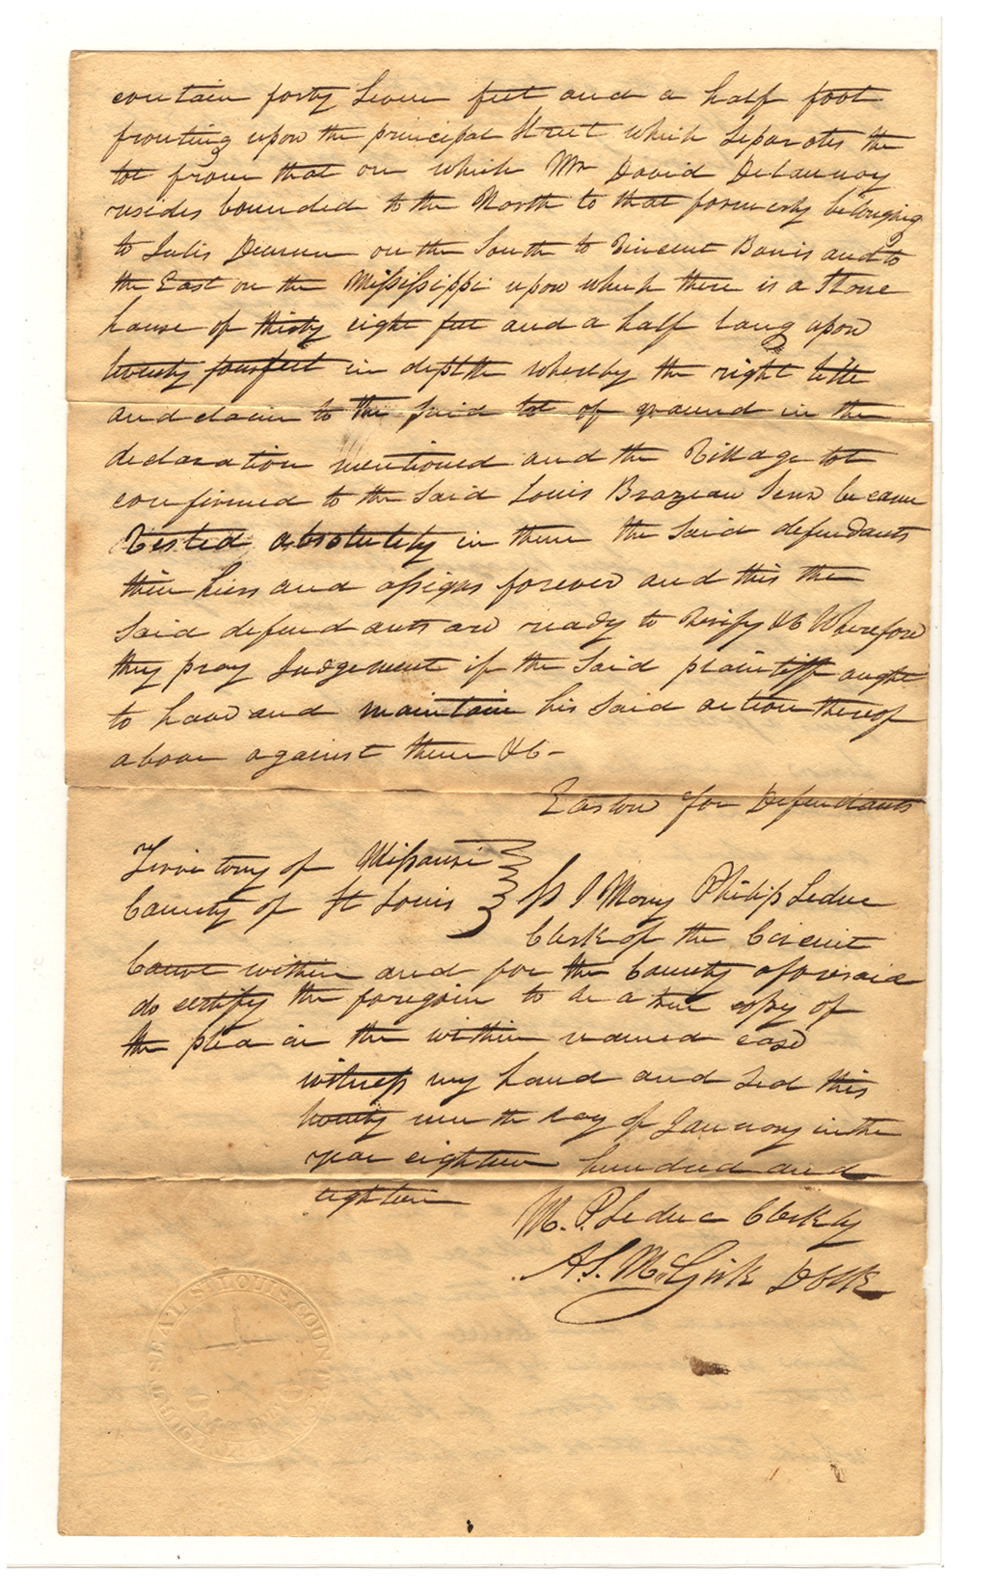 contain forty seven feet and a half foot
fronting upon the principal Street which separates the
lot from that on which Mr David Delaunay
resides bounded to the North to that formerly belonging
to Julis on the South to Vincent Bouis and to
the East on the Mississippi upon which there is a Stone
house of thirty eight feet and a half long upon
twenty four feet in depth whereby the right title
and claim to the said lot of ground in the
declaration mentioned and the Village lot
confirmed to the said Louis Brazeau Senr became
Vested absolutely in them the said defendants
their hiers and assigns forever and this the
said defendants are ready to Verify &C Wherefore
they pray Judgement if the said plaintiff ought
to have and maintain his said action thereof
above against them &C-
Easton for Defendants
Territory of Missouri
County of St Louis
Ss I Mary Philip Leduc
Clerk of the Circuit
Court within and for the County aforesaid
do certify the foregoin to be a true copy of
the plea in the within named case
witness my hand and Seal this
twenty nine th day of January in the
year eighteen hundred and
eighteen
M. P. Leduc Clerk by
A. S. McGirk DClk
SEAL ST LOUIS COUNTY